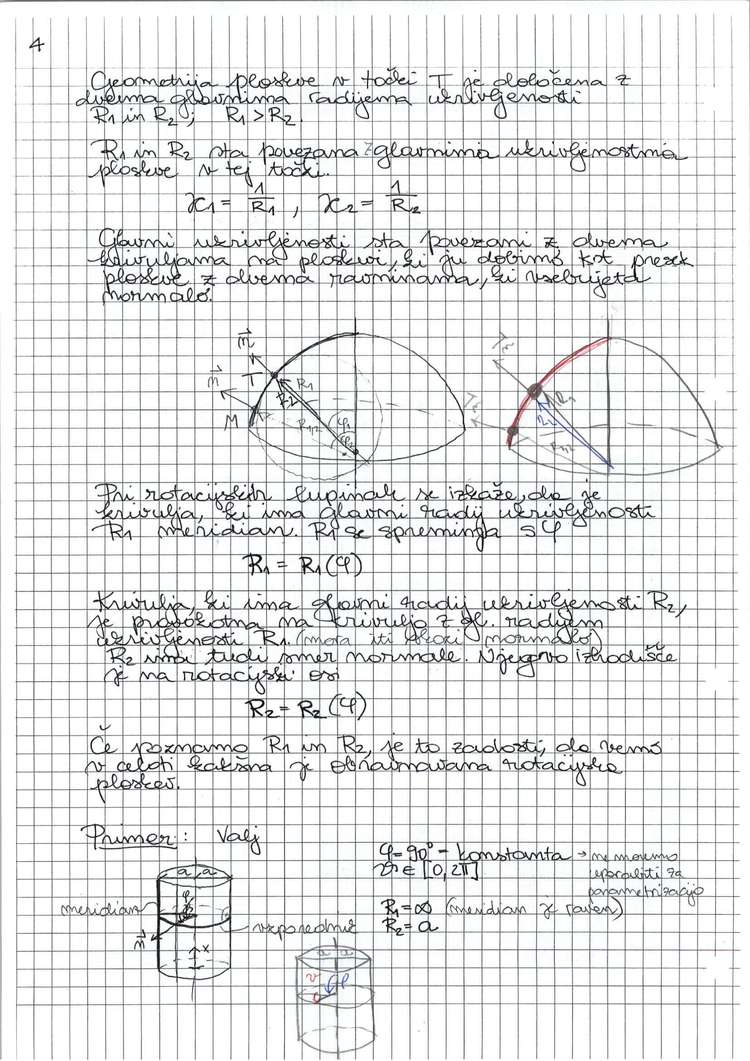 4
Geometrija ploskve v točki T je določena z
dvema glavnima radijema ukrivljenosti
R1 in R2; R1 > R2.
R1 in R2 sta povezana z glavnima ukrivljenostma
ploskve v tej točki.
ϰ1 = 1/R1 , ϰ2 = 1/R2
Glavni ukrivljenosti sta povezani z dvema
krivuljama na ploskvi, ki ju dobimo kot presek
ploskve z dvema ravninama, ki vsebujeta
normalo.
n
T
R1
R2
n
M
φ
R1
R2
Pri rotacijskih lupinah se izkaže, da je
krivulja, ki ima glavni radij ukrivljenosti
R1 meridian. R1 se spreminja s φ
R1 = R1(φ)
Krivulja, ki ima glavni radij ukrivljenosti R2,
je pravokotna na krivuljo z gl. radijem
ukrivljenosti R1. (mora iti skozi normalo)
R2 ima tudi smer normale. Njegovo izhodišče
je na rotacijski osi
R2 = R2(φ)
Če poznamo R1 in R2, je to zadosti, da vemo
v celoti kakšna je obravnavana rotacijska
ploskev.
Primer: Valj
φ = 90° - konstanta → ne moremo
uporabiti za
parametrizacijo
ϑ ∈ [0, 2π]
R1 = ∞ (meridian je raven)
R2 = a
a a
φ
meridian
vzporednik
n
x
a a
φ